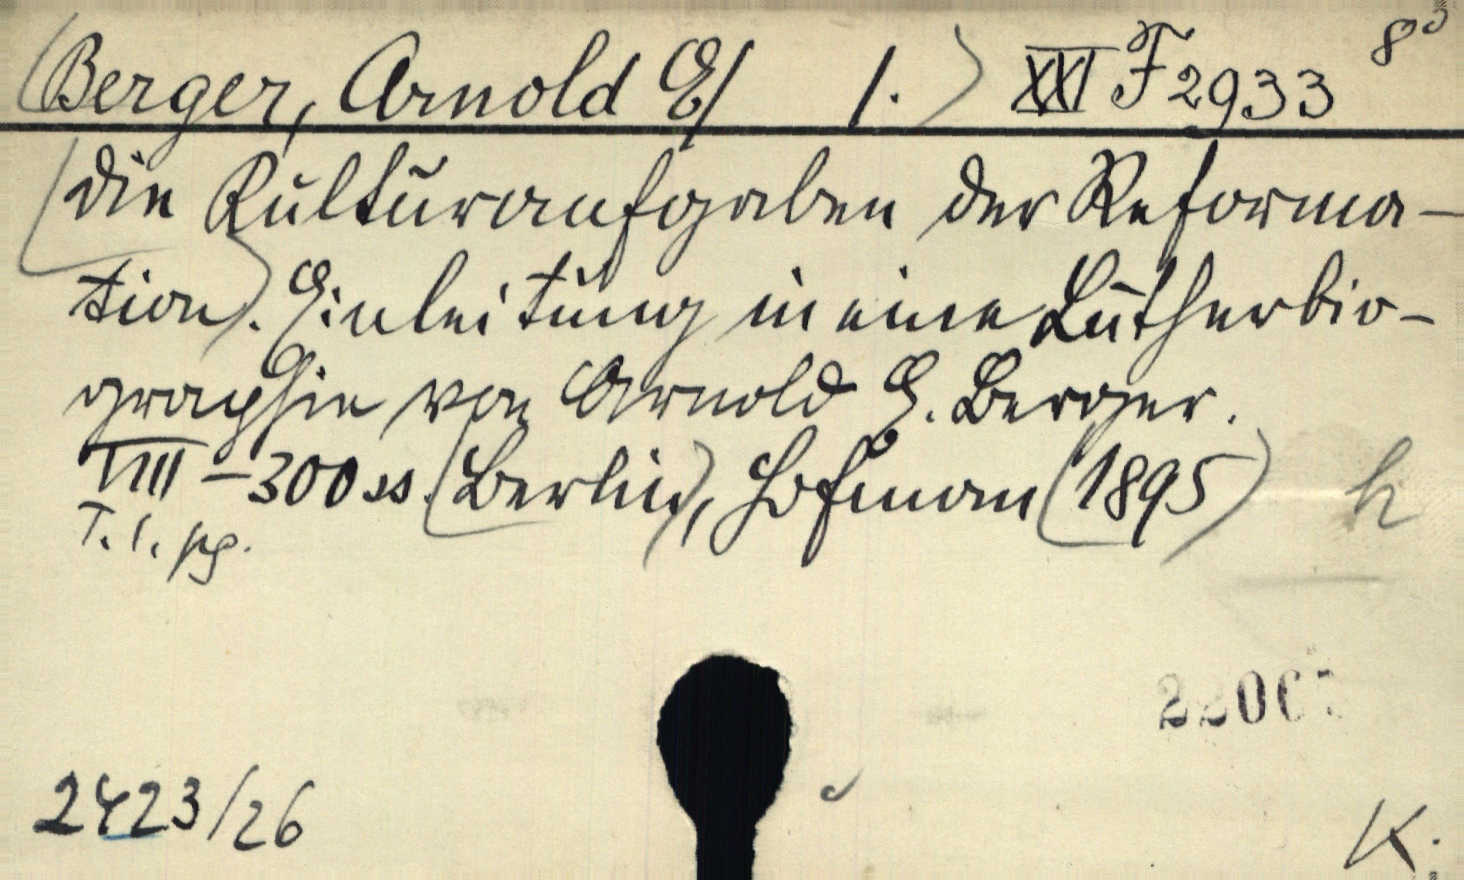 (Berger, Arnold E/ 1.) XXI F 2933 8°
(Die Kulturaufgaben der Reforma-
tion). Einleitung in eine Lutherbio-
graphie von Arnold E. Berger.
VIII - 300 ss. (Berlin), Hofman (1895) h
T. 1. pg.
2423/26
K.